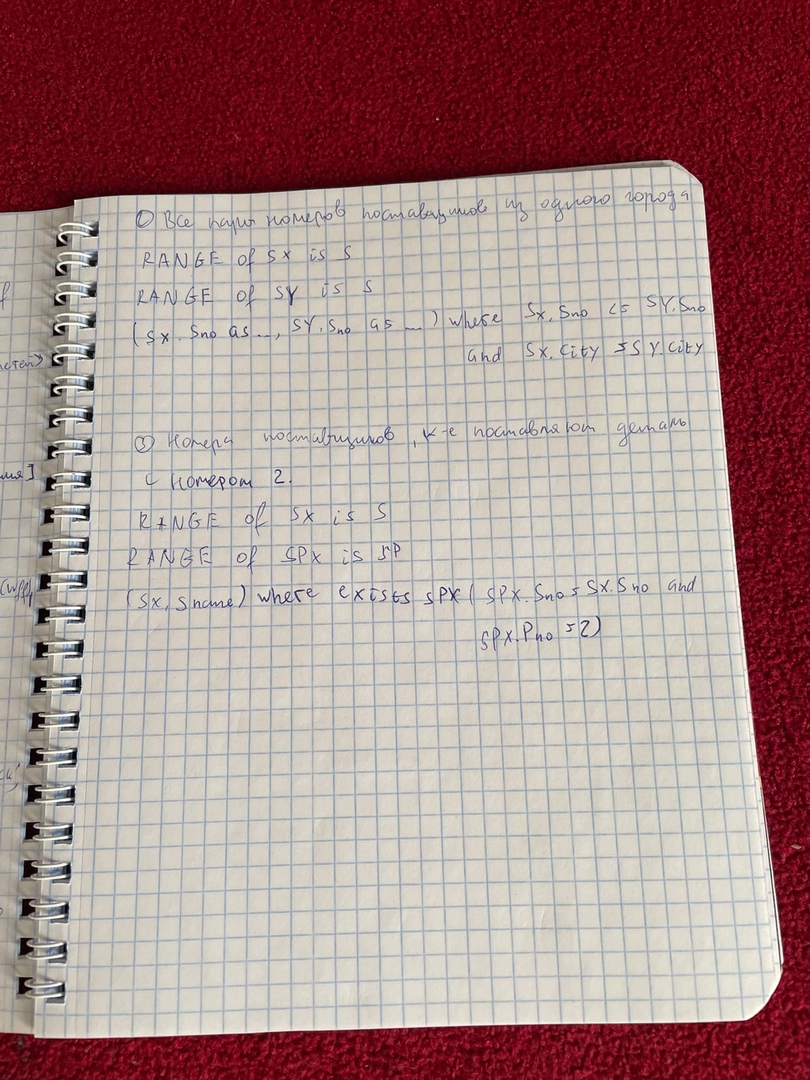 ① Все пары номеров поставщиков из одного города
RANGE of SX is S
RANGE of SY is S
(SX.Sno as ..., SY.Sno as ...) where SX.Sno <= SY.Sno
and SX.City = SY.City
③ Номера поставщиков, к-е поставляют деталь
с номером 2.
RANGE of SX is S
RANGE of SPX is SP
(SX, Sname) where exists SPX (SPX.Sno = SX.Sno and
SPX.Pno = 2)